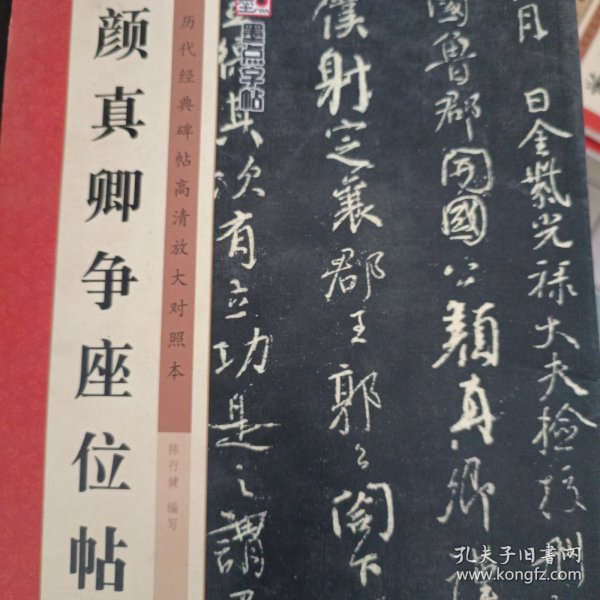 颜真卿争座位帖
历代经典碑帖高清放大对照本
陈行健 编写
墨点字帖
月 日金紫光禄大夫检校刑
国鲁郡开国公颜真卿
仆射定襄郡王郭公阁下
其次有立功是之谓
孔夫子旧书网
www.kongfz.com